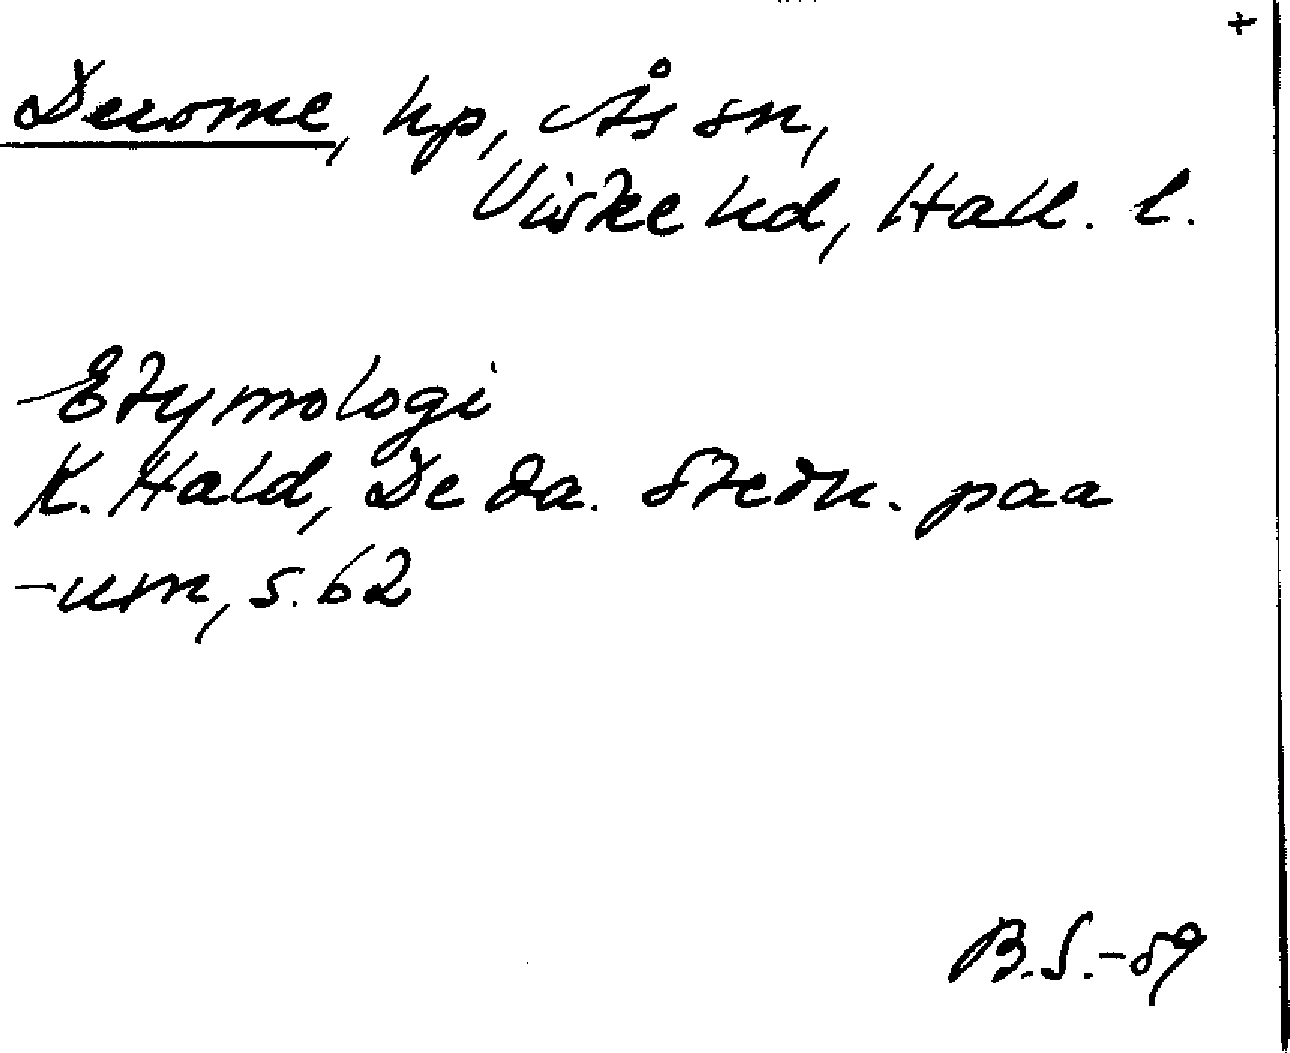 +
Derome, hp, Ås sn,
Viske hd, Hall. l.
Etymologi
K. Hald, De da. Stedn. paa
-um, s. 62
B.S.-59